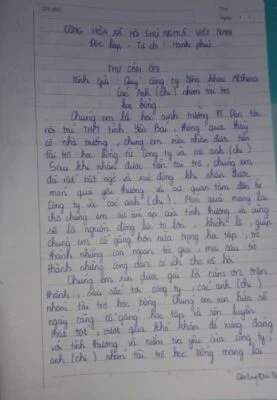 CỘNG HÒA XÃ HỘI CHỦ NGHĨA VIỆT NAM
Độc lập - Tự do - Hạnh phúc
THƯ CẢM ƠN
Kính gửi: Quý công ty Nha khoa
Các anh (chị) nhóm tài trợ
học bổng
Chúng em là học sinh trường PT Dân tộc
nội trú THPT tỉnh Yên Bái, thông qua thầy
cô nhà trường, chúng em vừa nhận được tiền
tài trợ học bổng từ công ty và các anh (chị)
Sau khi nhận được tiền tài trợ, chúng em
đã rất bất ngờ và xúc động khi nhận được
món quà yêu thương và sự quan tâm đến từ
công ty và các anh (chị). Món quà mang lại
cho chúng em sự ấm áp của tình thương và cũng
sẽ là nguồn động lực to lớn, khích lệ, giúp
chúng em cố gắng hơn nữa trong học tập, trở
thành những con ngoan trò giỏi, mai sau trở
thành những công dân có ích cho xã hội.
Chúng em xin được gửi lời cảm ơn chân
thành, sâu sắc tới công ty, các anh (chị)
nhóm tài trợ học bổng. Chúng em xin hứa sẽ
ngày càng cố gắng học tập và rèn luyện
thật tốt, vượt qua khó khăn để xứng đáng
với tình thương và niềm tin yêu của công ty,
anh (chị) nhóm tài trợ học bổng mang lại